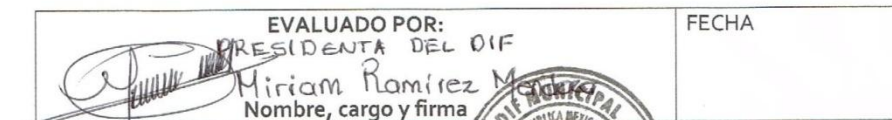 EVALUADO POR:
FECHA
PRESIDENTA DEL DIF
Miriam Ramírez
Nombre, cargo y firma
DIF MUNICIPAL